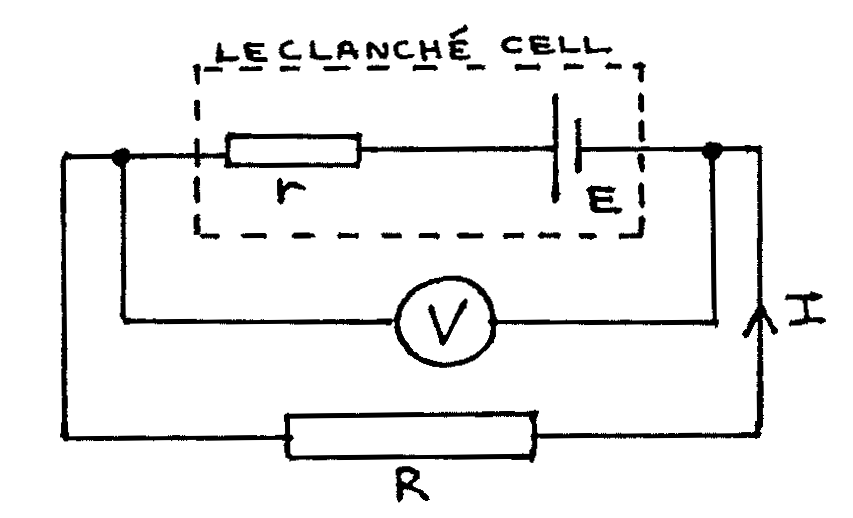 LECLANCHÉ CELL
r
E
V
I
R